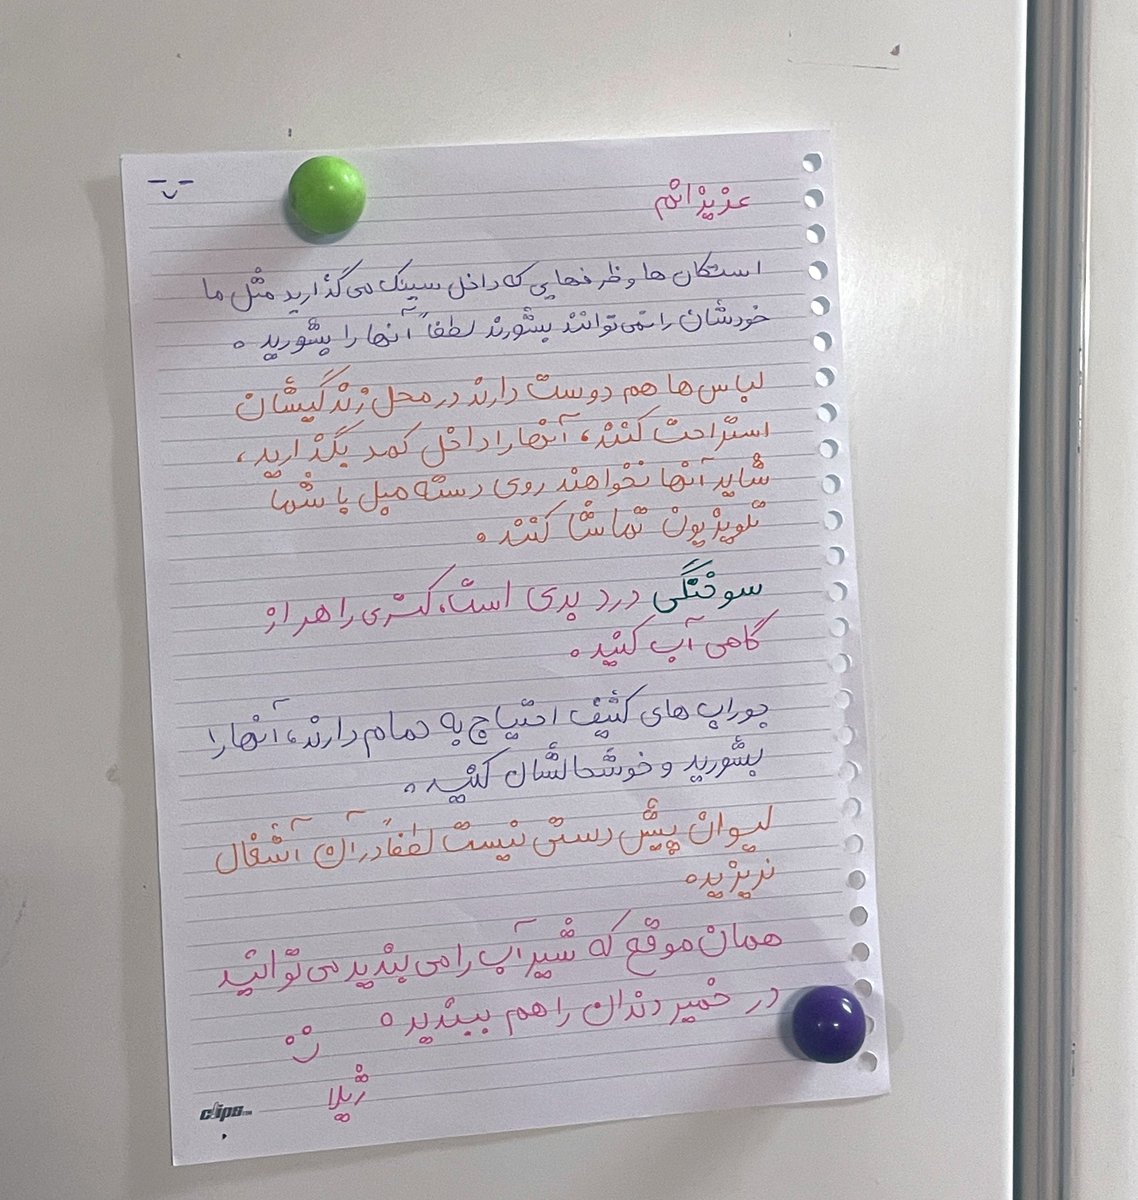 عزیزانم
استکان ها و ظرفهایی که داخل سینک می گذارید مثل ما
خودشان را نمی توانند بشورند لطفاً آنها را بشورید.
لباس ها هم دوست دارند در محل زندگیشان
استراحت کنند، آنها را داخل کمد بگذارید،
شاید آنها نخواهند روی دسته مبل با شما
تلویزیون تماشا کنند.
سوختگی درد بدی است، کتری را هر از
گاهی آب کنید.
جوراب های کثیف احتیاج به حمام دارند، آنها را
بشورید و خوشحالشان کنید.
لیوان پیش دستی نیست لطفاً در آن آشغال
نریزید.
همان موقع که شیر آب را می بندید می توانید
در خمیر دندان را هم ببندید.
ژیلا
clips